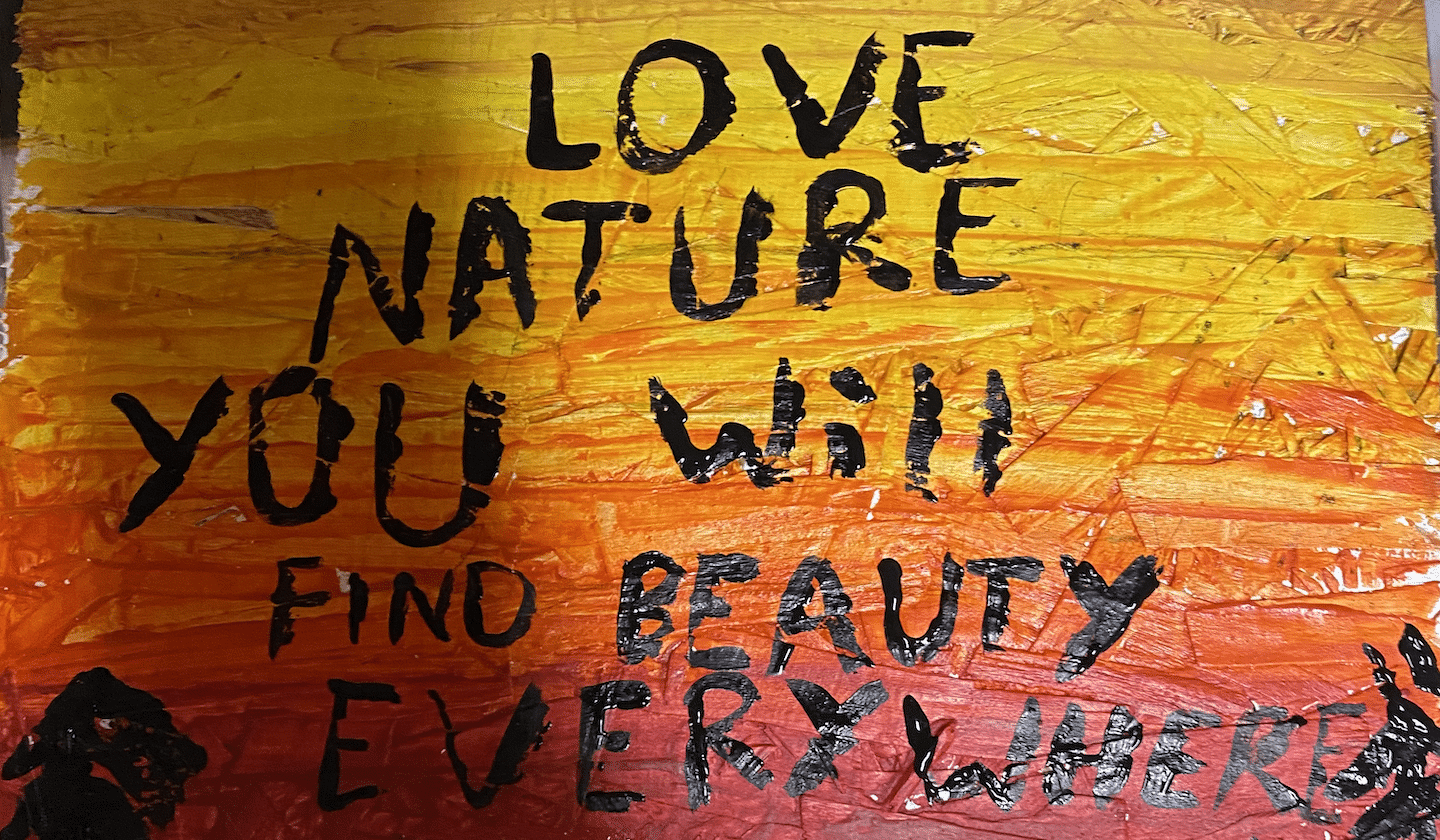 LOVE
NATURE
YOU Will
FIND BEAUTY
EVERYWHERE